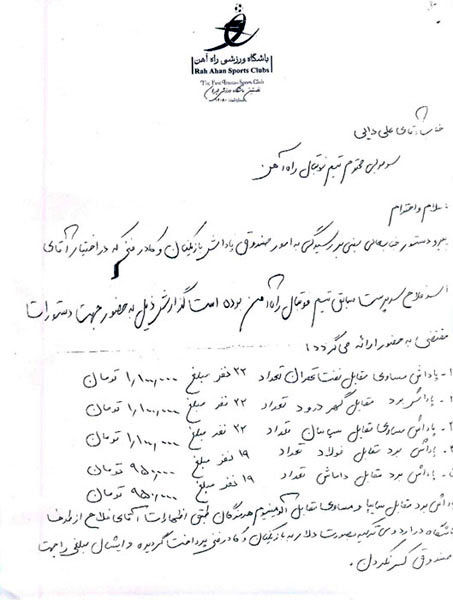 باشگاه ورزشی راه آهن
Rah Ahan Sports Clubs
The First Iranian Sports Club
جناب آقای علی دایی
سرمربی محترم تیم فوتبال راه آهن
سلام و احترام
دستور جنابعالی مبنی بر رسیدگی به امور صندوق پاداش بازیکنان و کادر فنی که در اختیار آقای
اسد فلاح سرپرست سابق تیم فوتبال راه آهن بوده است گزارش ذیل به حضور جهت دستورات
مقتضی به حضور ارائه می گردد:
۱- پاداش مساوی مقابل نفت تهران تعداد ۲۲ نفر مبلغ ۱,۱۰۰,۰۰۰ تومان
پاداش برد مقابل گهر درود تعداد ۲۲ نفر مبلغ ۱,۱۰۰,۰۰۰ تومان
پاداش مساوی مقابل سپاهان تعداد ۲۲ نفر مبلغ ۱,۱۰۰,۰۰۰ تومان
پاداش برد مقابل فولاد تعداد ۱۹ نفر مبلغ ۹۵۰,۰۰۰ تومان
پاداش برد مقابل داماش تعداد ۱۹ نفر مبلغ ۹۵۰,۰۰۰ تومان
پاداش برد مقابل سایپا و مساوی مقابل آلومینیوم هرمزگان طبق اظهارات آقای فلاح از طرف
باشگاه در اردوی ترکیه بصورت دلار به بازیکنان و کادر فنی پرداخت گردیده و ایشان مبلغی را جهت
صندوق کسر نکردند.